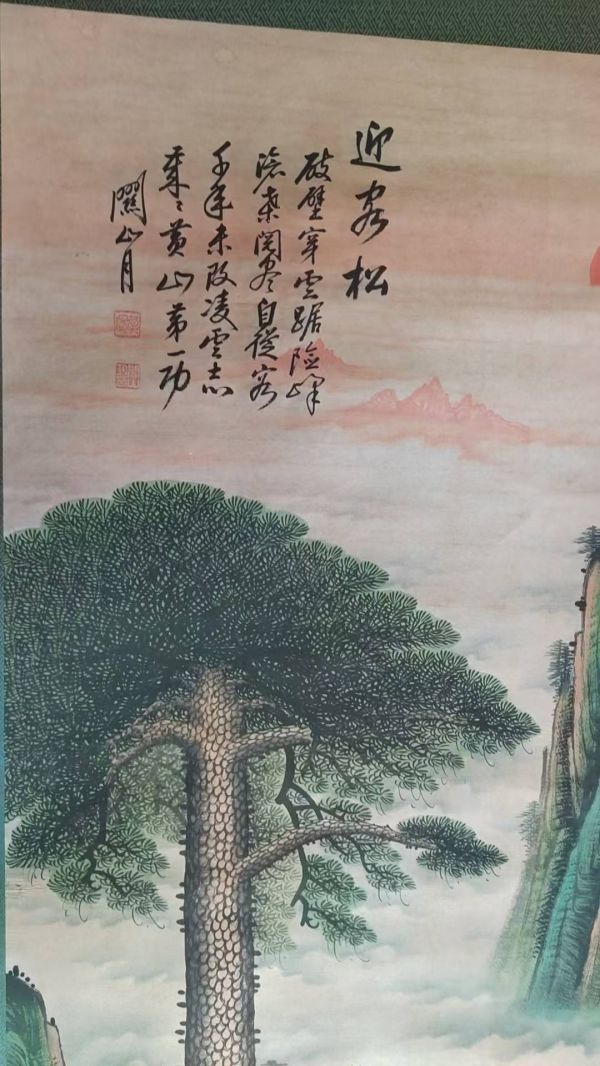 迎客松
破壁穿雲踞险峰
沧桑阅尽自從容
千年未改凌雲志
黄山第一功
關山月